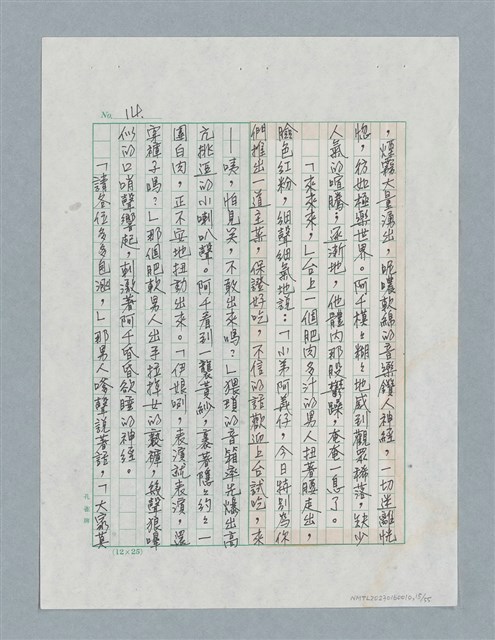 No. 14.
，煙霧大量湧出，呢噥軟綿的音樂鑽人神經，一切迷離恍
惚，彷如極樂世界。阿千模模糊糊地感到觀眾稀落，缺少
人氣的喧騰，逐漸地，他體內那股鬱躁，奄奄一息了。
「來來來，」台上一個肥肉多汁的男人扭著腰走出，
臉色紅粉，細聲細氣地說：「小弟阿義仔，今日特別為你
們推出一道主菜，保證好吃，不信的話歡迎上台試吃，來
——咦，怕見笑，不敢出來嗎？」猥瑣的音箱率先爆出高
亢挑逗的小喇叭聲。阿千看到一襲黃紗，裹著隱隱約約一
團白肉，正不安地扭動出來。「伊娘咧，表演就表演，還
穿褲子嗎？」那個肥軟男人出手拉掉女的褻褲，幾聲狼嗥
似的口哨聲響起，刺激著阿千昏昏欲睡的神經。
「請各位多多自洩，」那男人嗲聲說著話，「大家莫
孔雀牌
(12×25)
NMTL20270150010,15/55